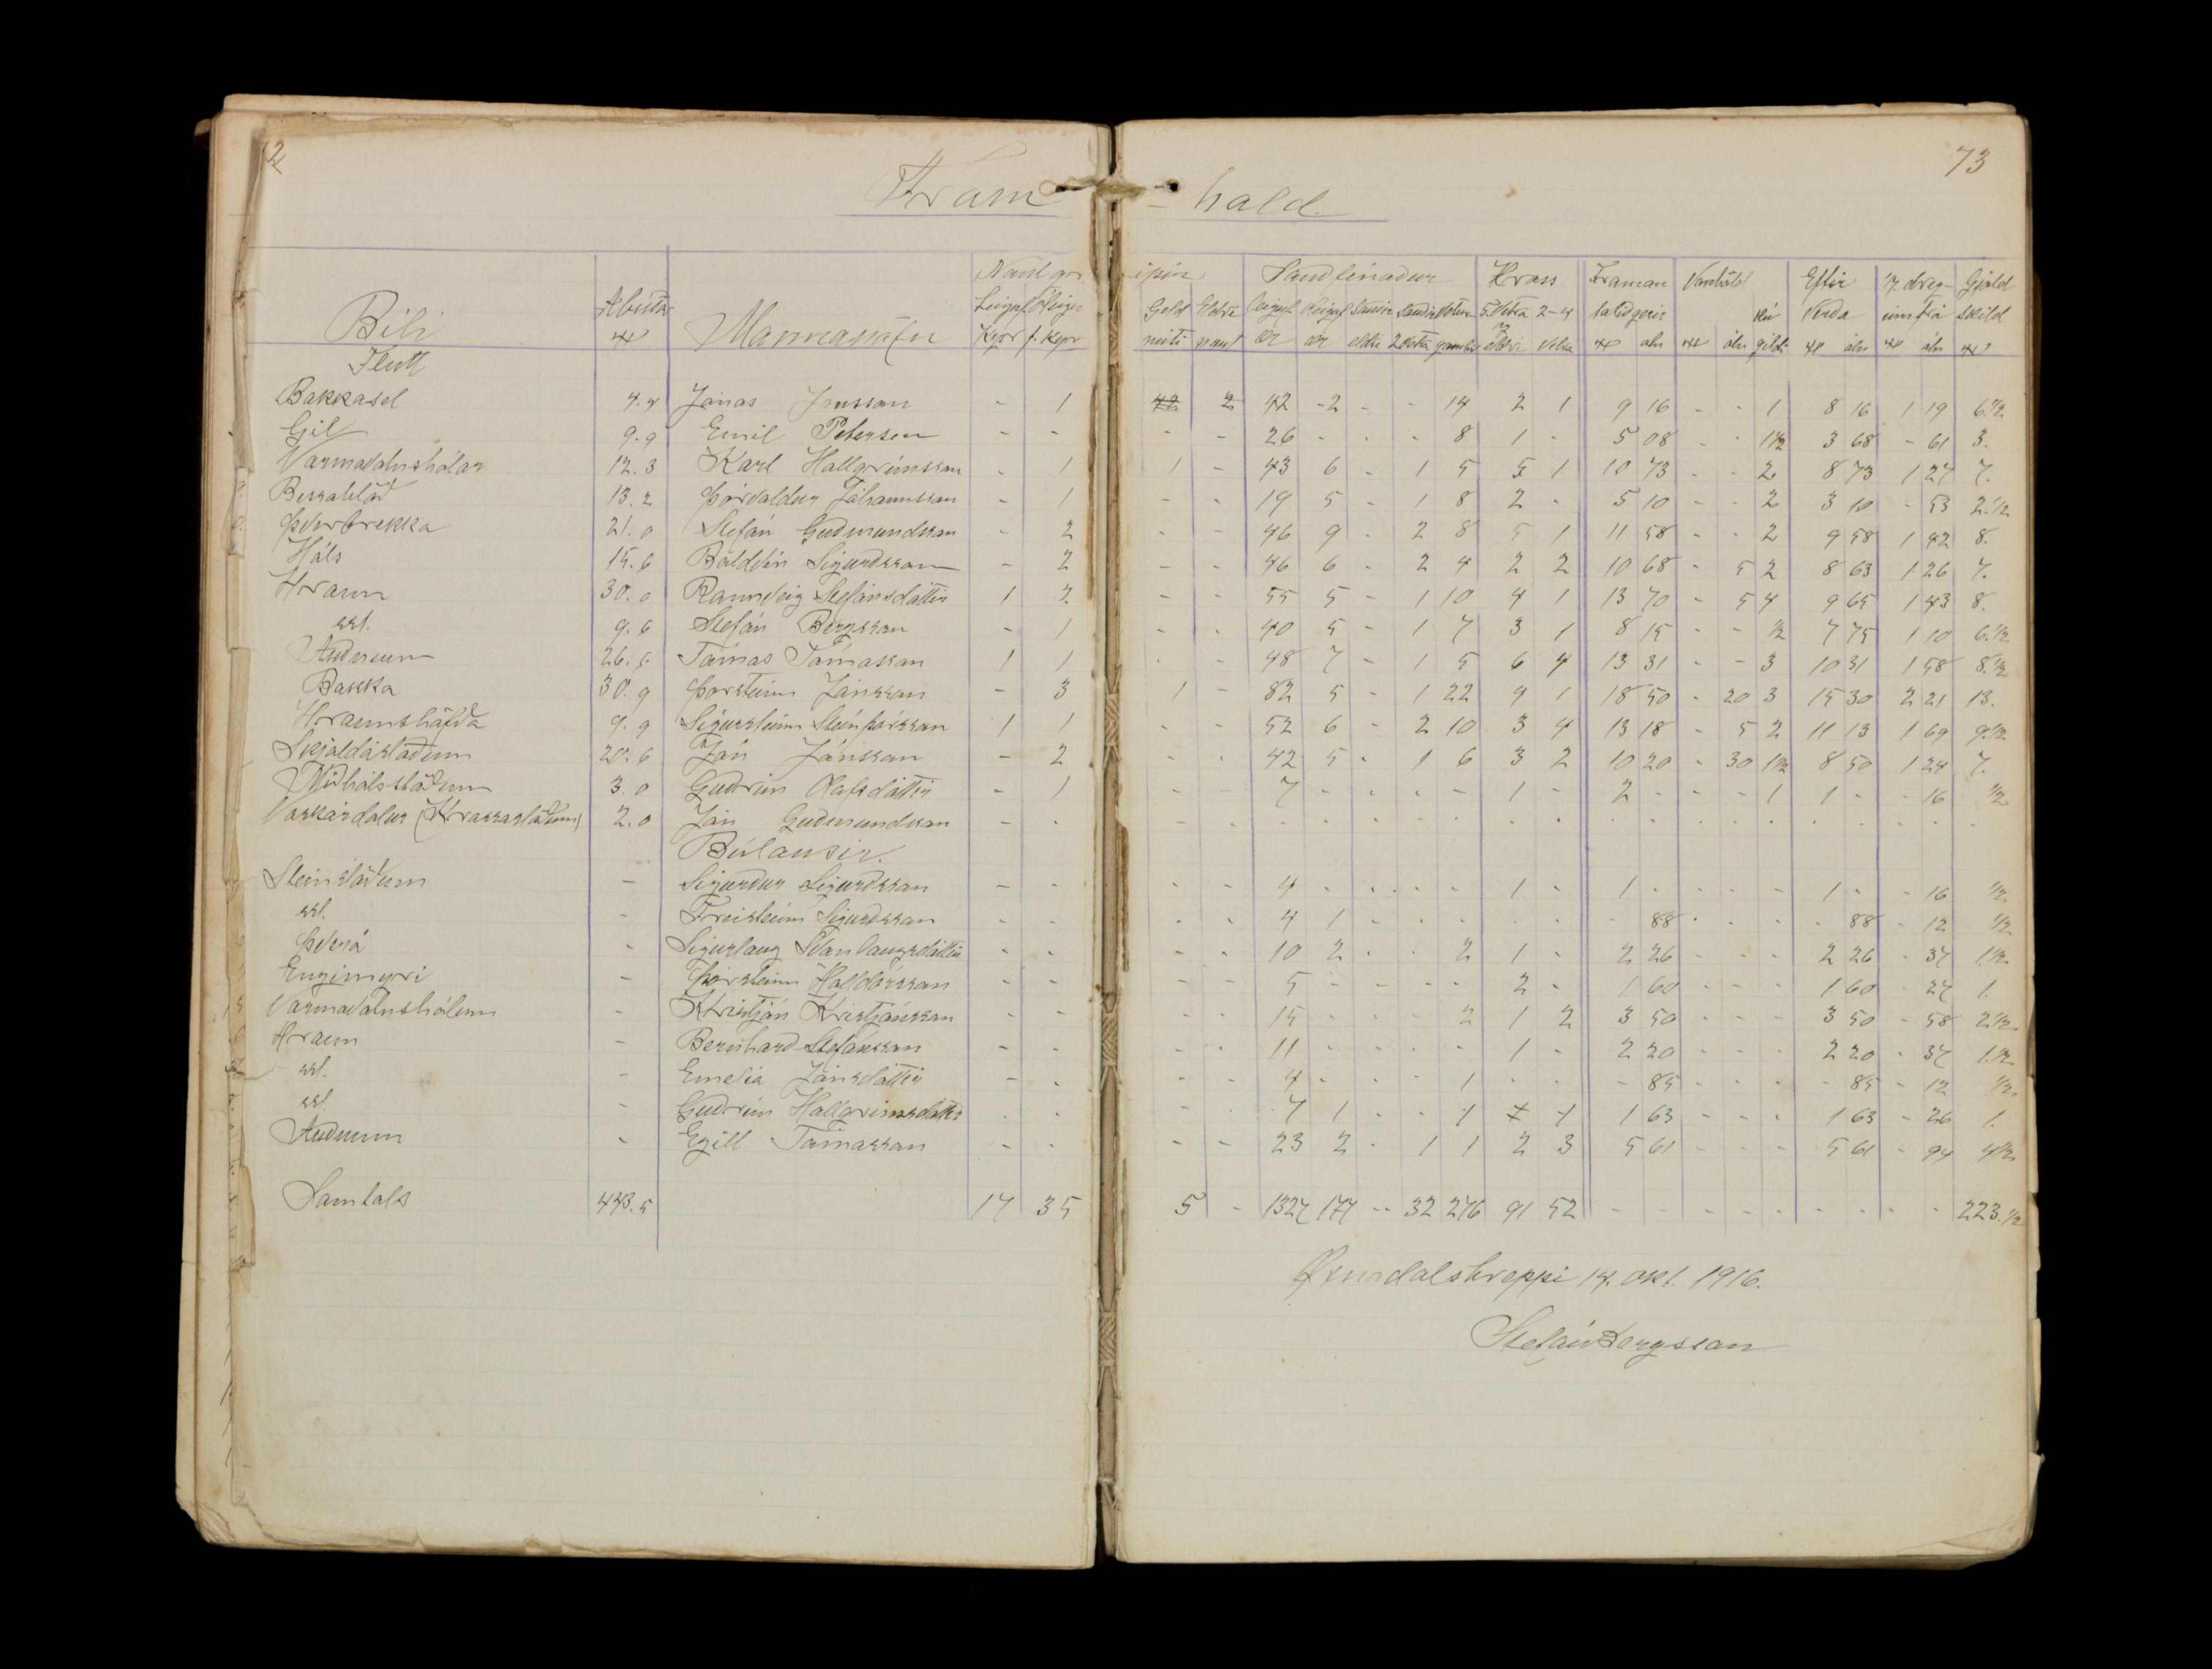 73
Fram - hald.
Býli Ábúðar Mannanöfn Nautgr ipir Sauðfénaður Hross Framan Vanhöld Eftir 1/7 dreg- Gjald
Geld Eldri 5. vetra 2-4 talið gerir verða umfrá skild
Kýr f. kýr neiti naut ær ær eldri 2 vetra eldri vetra al al gildi al al
Flutt
Bakkasel 4.4 Jónas Jónsson - 1 42 2 42 -2 - - 14 2 1 9 16 - - 1 8 16 1 19 6.1/2
Gil 9.9 Emil Petersen - - - - 26 - - - 8 1 - 5 08 - - 1 1/2 3 68 - 61 3.
Varmavatnshólar 12.3 Karl Hallgrímsson - 1 1 - 43 6 - 1 5 5 1 10 73 - - 2 8 73 1 27 7.
Bessahlað 13.2 Þórvaldur Jóhannsson - 1 - - 19 5 - 1 8 2 - 5 10 - - 2 3 10 - 53 2.1/2
Þverbrekka 21.0 Stefán Guðmundsson - 2 - - 46 9 - 2 8 5 1 11 58 - - 2 9 58 1 42 8.
Háls 15.6 Baldvin Sigurðsson - 2 - - 46 6 - 2 4 2 2 10 68 - 5 2 8 63 1 26 7.
Hraun 30.0 Rannveig Stefánsdóttir 1 2 - - 55 5 - 1 10 4 1 13 70 - 5 4 9 65 1 43 8.
sst. 9.6 Stefán Bergsson - 1 - - 40 5 - 1 7 3 1 8 15 - - 1/2 7 75 1 10 6.1/2
Auðnum 26.6 Tómas Tómasson 1 1 - - 48 7 - 1 5 6 4 13 31 - - 3 10 31 1 58 8.1/2
Bakka 30.9 Þorsteinn Jónsson - 3 1 - 82 5 - 1 22 4 1 18 50 - 20 3 15 30 2 21 13.
Hraunshöfða 9.9 Sigursteinn Steinþórsson 1 1 - - 52 6 - 2 10 3 4 13 18 - 5 2 11 13 1 69 9.1/2
Skjaldarstöðum 20.6 Jón Jónsson - 2 - - 42 5 - 1 6 3 2 10 20 - 30 1 1/2 8 50 1 24 7.
Miðhálsstöðum 3.0 Guðrún Ólafsdóttir - 1 - - 7 - - - - 1 - 2 - - - 1 1 - - 16 1/2
Vaskárdalur (Krossastöðum) 2.0 Jón Guðmundsson - - - - - - - - - - - - - - - - - - - - -
Búlausir.
Steinstöðum - Sigurður Sigurðsson - - - - 4 - - - - 1 - 1 - - - - 1 - - 16 1/2
ssl. - Freisteinn Sigurðsson - - - - 4 1 - - - - - - 88 - - - - 88 - 12 1/2
Þverá - Sigurlaug Svanlaugsdóttir - - - - 10 2 - - 2 1 - 2 26 - - - 2 26 - 37 1.1/2
Engimýri - Þorsteinn Halldórsson - - - - 5 - - - - 2 - 1 60 - - - 1 60 - 27 1.
Varmavatnshólum - Kristján Kristjánsson - - - - 15 - - - 2 1 2 3 50 - - - 3 50 - 58 2 1/2
Hraun - Bernharð Stefánsson - - - - 11 - - - - 1 - 2 20 - - - 2 20 - 37 1.1/2
ssl. - Emelía Jónsdóttir - - - - 4 - - - 1 - - - 85 - - - - 85 - 12 1/2
ssl. - Guðrún Hallgrímsdóttir - - - - 7 1 - - 1 1 1 1 63 - - - 1 63 - 26 1.
Auðnum - Egill Tómasson - - - - 23 2 - 1 1 2 3 5 61 - - - 5 61 - 94 4 1/2
Samtals 443.5 17 35 5 - 1327 177 -- 32 276 91 52 - - - - - - - - - 223.1/2
Öxnadalshreppi 14. okt. 1916.
Stefán Bergsson